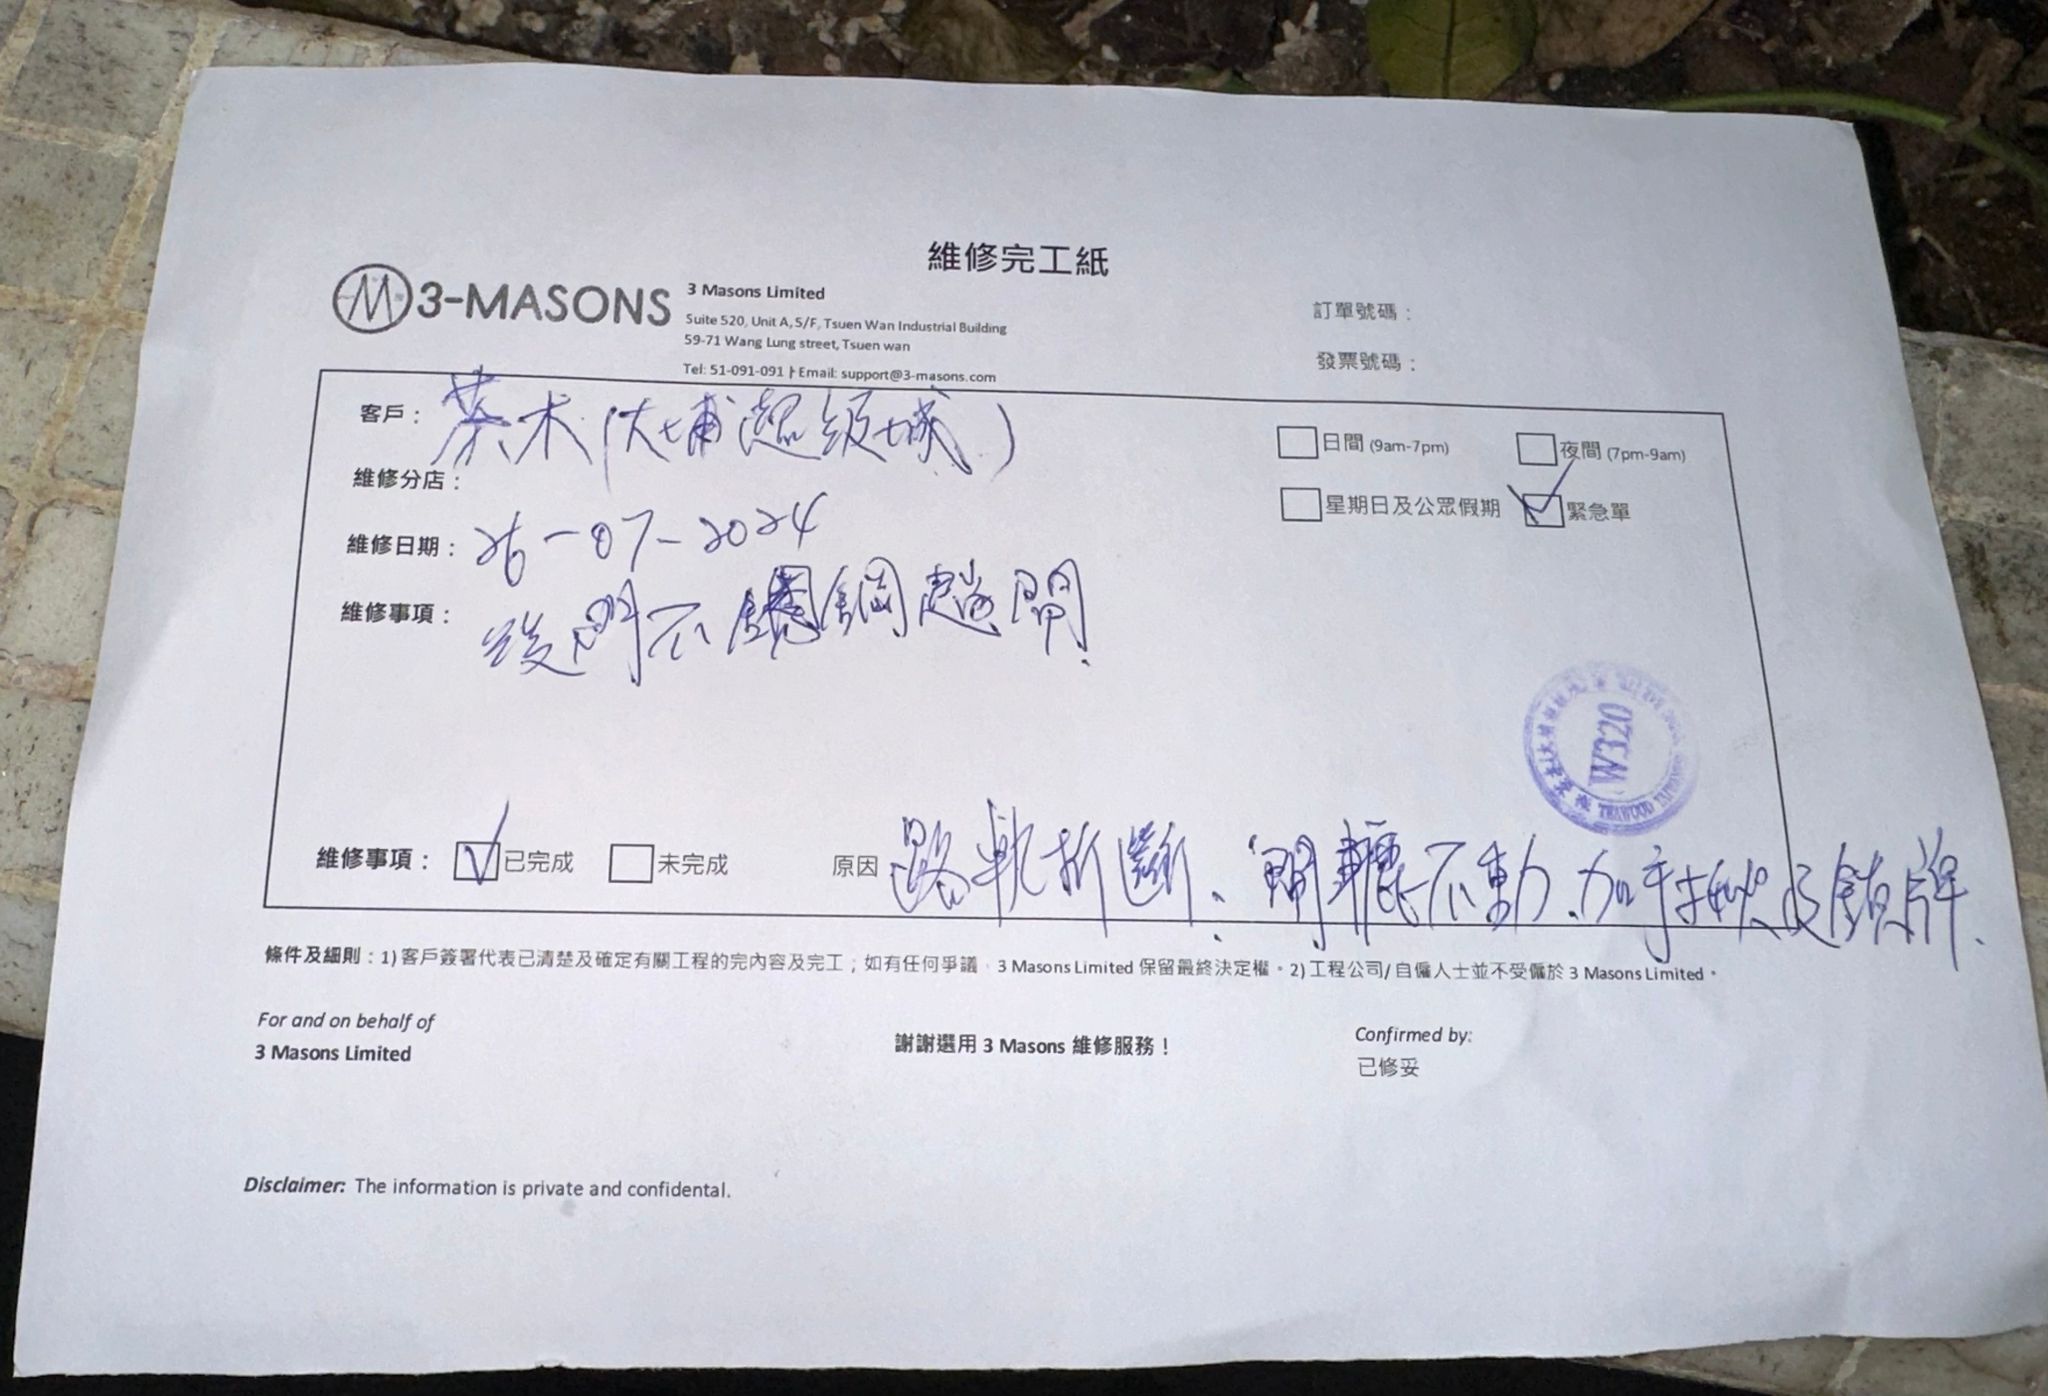 維修完工紙
3-MASONS
3 Masons Limited
Suite 520, Unit A, 5/F, Tsuen Wan Industrial Building
59-71 Wang Lung street, Tsuen wan
Tel: 51-091-091 | Email: support@3-masons.com
訂單號碼：
發票號碼：
客戶： 茶木(大埔超級城)
日間 (9am-7pm) 夜間 (7pm-9am)
維修分店：
星期日及公眾假期 緊急單
維修日期： 26-07-2024
維修事項： 後門不鏽鋼趟閘
W320
TEAWOOD
維修事項： 已完成 未完成 原因 路軌折斷、閘轆不動、加手抽及鎖牌、
條件及細則：1) 客戶簽署代表已清楚及確定有關工程的完內容及完工；如有任何爭議，3 Masons Limited 保留最終決定權。2) 工程公司/ 自僱人士並不受僱於 3 Masons Limited。
For and on behalf of
3 Masons Limited
謝謝選用 3 Masons 維修服務！
Confirmed by:
已修妥
Disclaimer: The information is private and confidental.